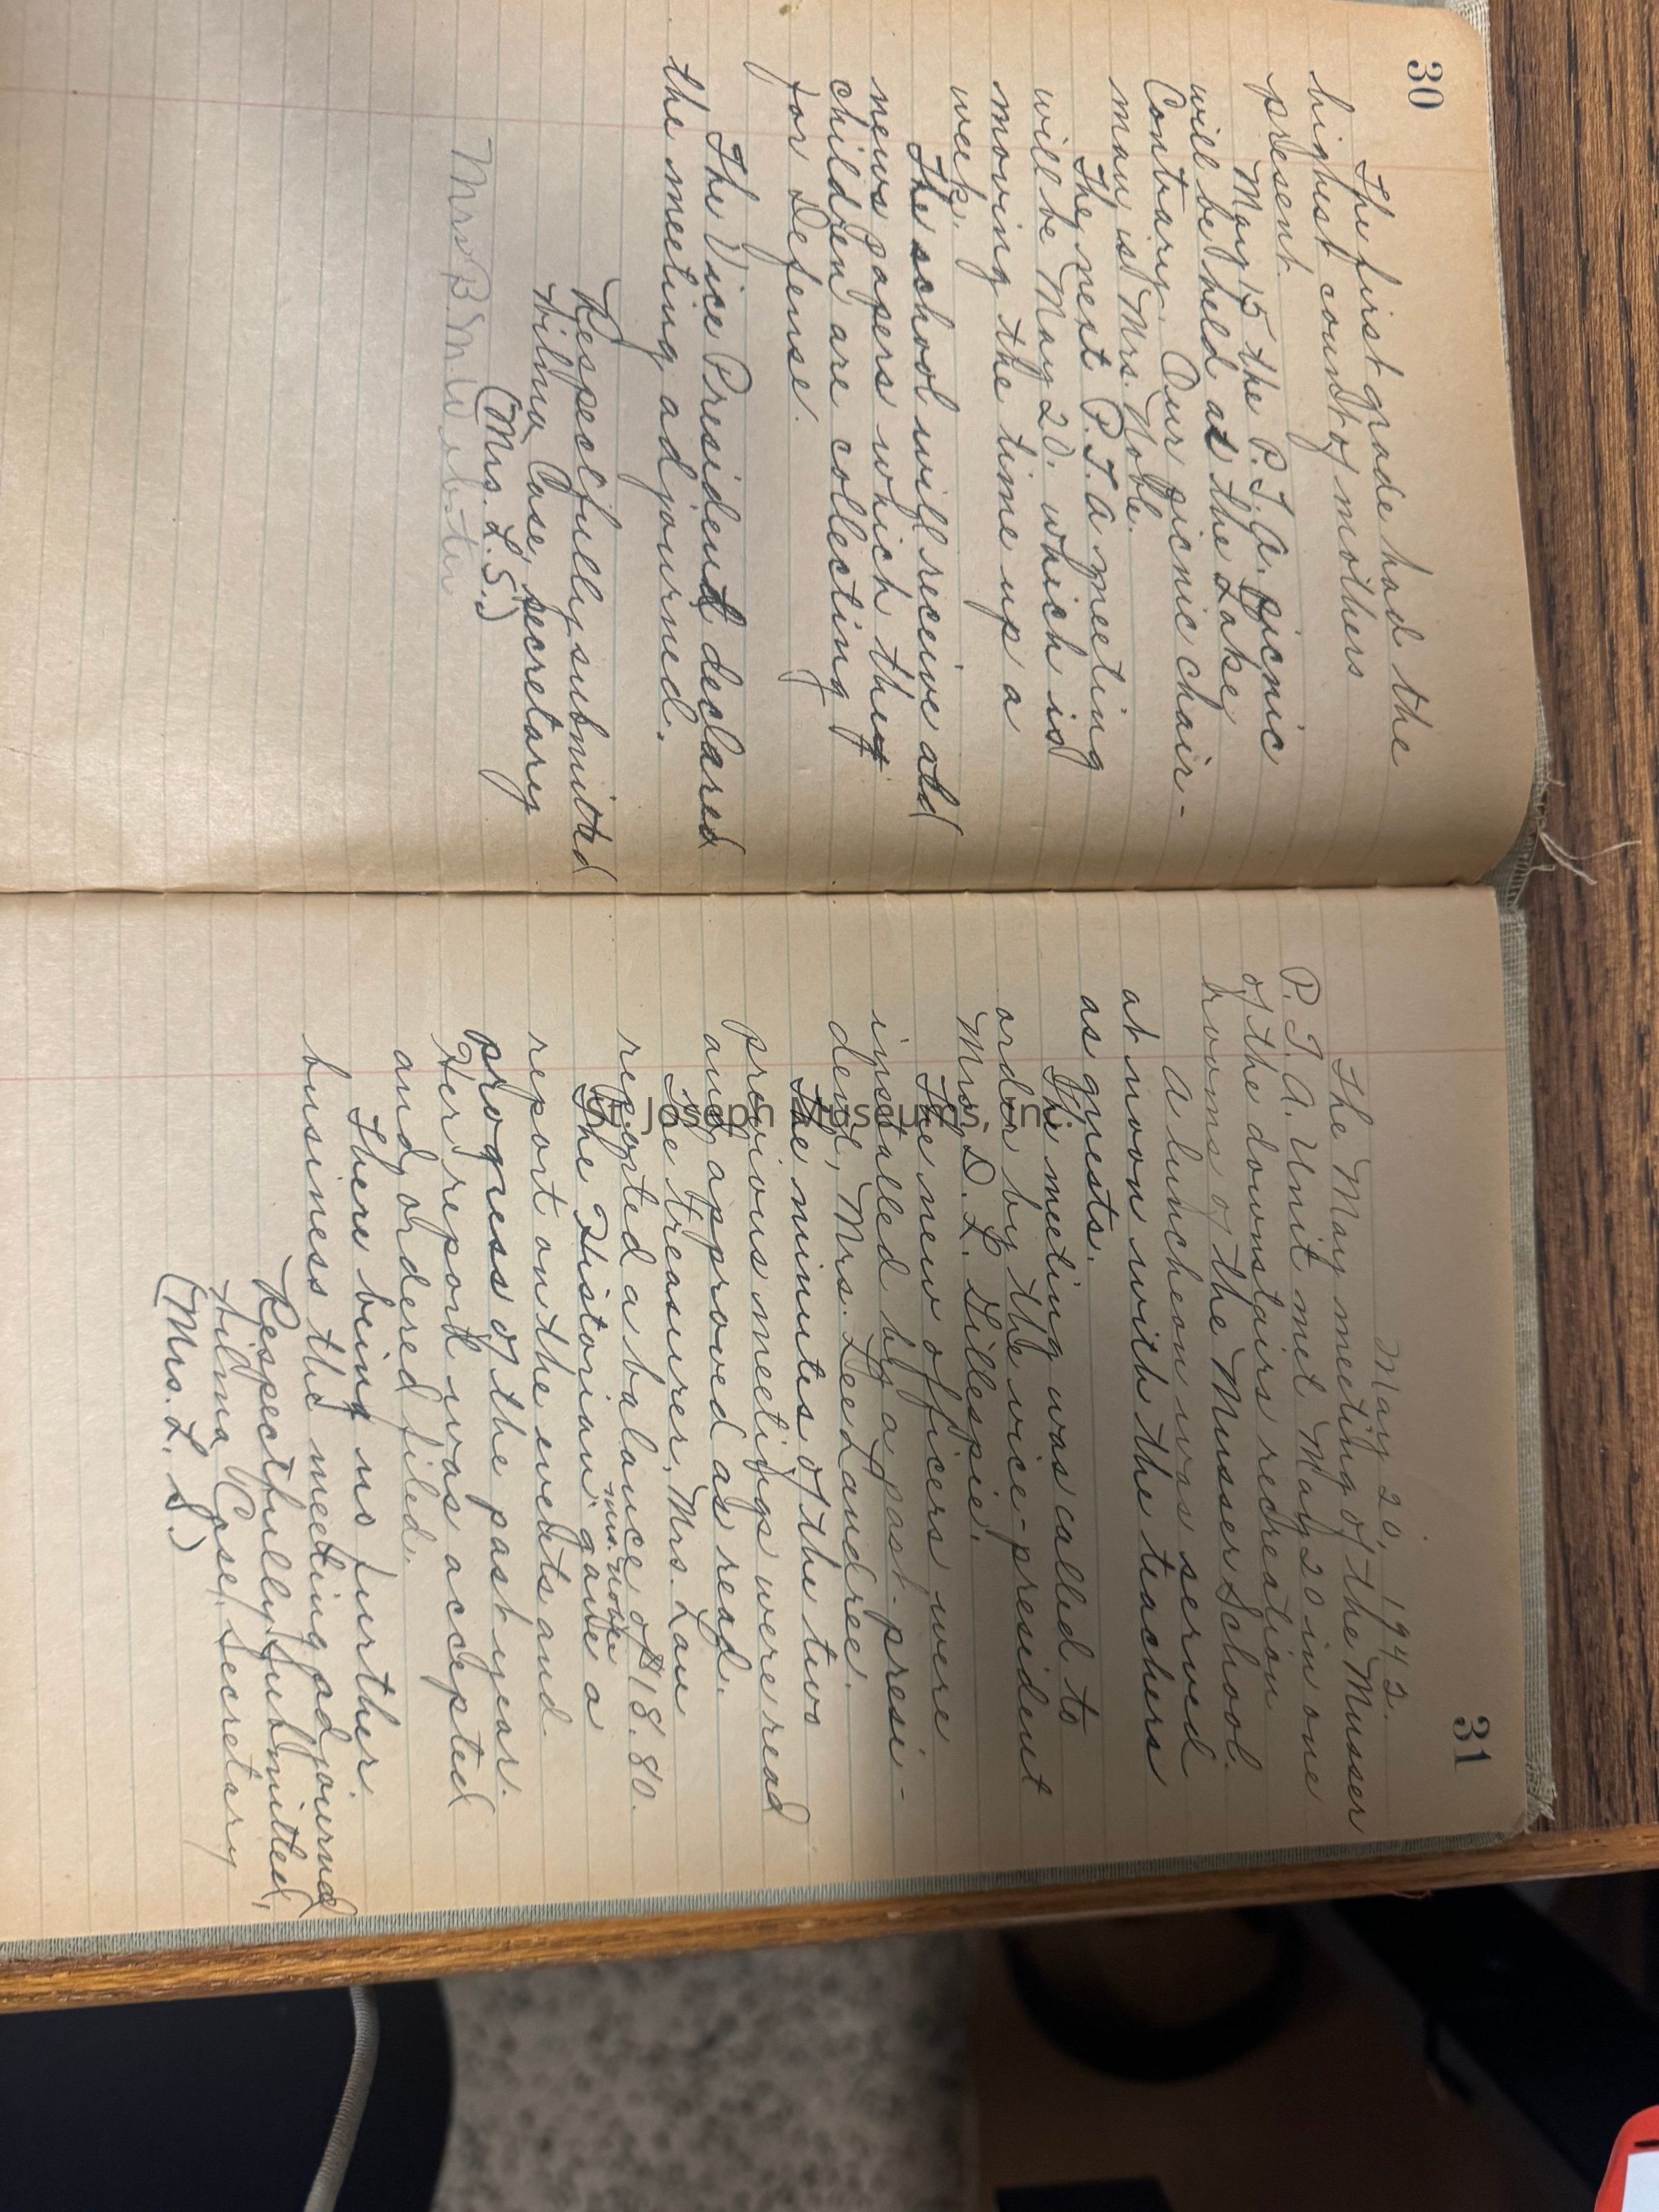 30
The first grade had the
highest count of mothers
present.
May 15 the P.T.A. picnic
will be held at the Lake
Contrary. Our picnic chair-
man is Mrs. Noble.
The next P.T.A meeting
will be May 20. which is
moving the time up a
week.
The school will receive all
news papers which the
children are collecting
for Defense.
The Vice President declared
the meeting adjourned.
Respectfully submitted
Wilma Case, Secretary
(Mrs. L.S.)
Mrs B. M Webster
31
May 20, 1942.
The May meeting of the Musser
P.T.A. Unit met May 20 in one
of the downstairs recreation
rooms of the Musser School.
A luncheon was served
at noon with the teachers
as guests.
The meeting was called to
order by the vice-president
Mrs. D. L. Gillespie.
The new officers were
installed by a past-presi-
dent, Mrs. Lee Landree.
The minutes of the two
previous meetings were read
and approved as read.
The treasurer, Mrs. Law
reported a balance of $18.80.
The Historian, Mrs. Noble gave a
report on the events and
progress of the past year.
Her report was accepted
and ordered filed.
There being no further
business the meeting adjourned
Respectfully submitted,
Wilma Case, Secretary
(Mrs. L. S.)
St. Joseph Museums, Inc.